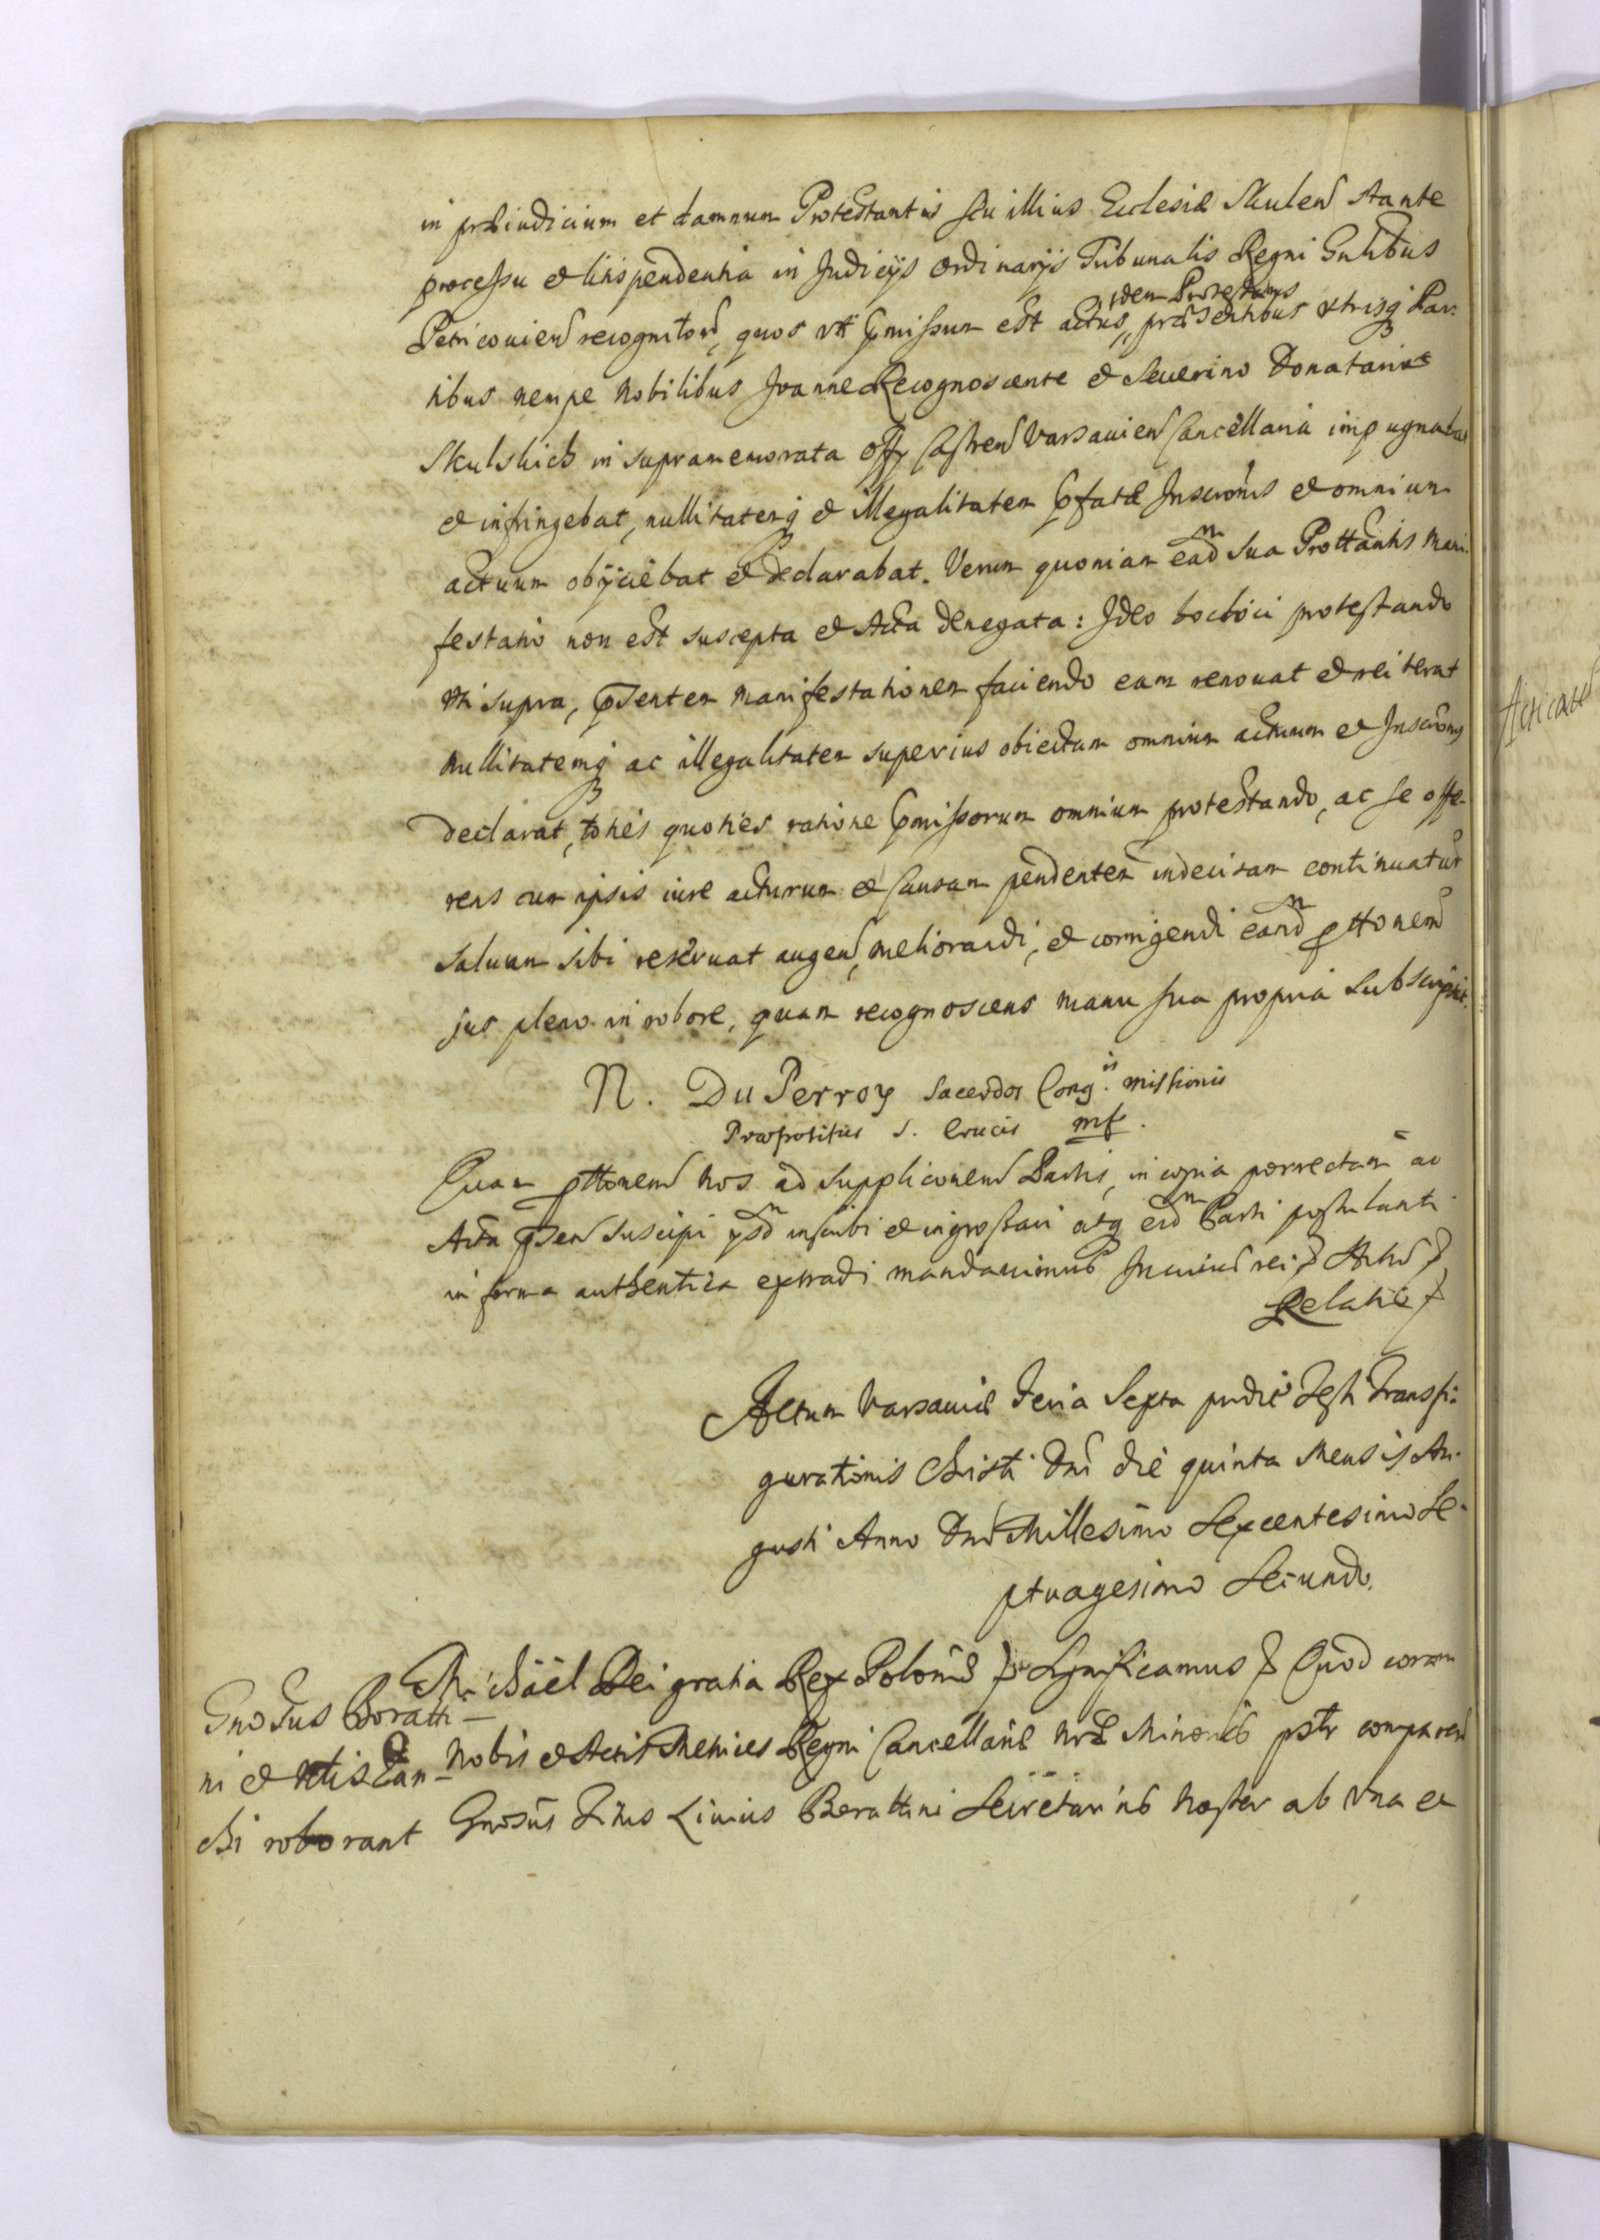 in præiudicium et damnum Protestantis seu illius Ecclesiæ Skulen stante
processu et litispendentia in Judicijs ordinarijs Tribunalis Regni Gnlibus
idem Protestans
Petricouien recognitor, quos uti pmissum est actus, præsentibus utrisq Par:
tibus nempe Nobilibus Joanne Recognoscente et Seuerino Donatario
Skulskich in supramemorata Offy Castren Varsauien Cancellaria impugnabat
et infringebat, nullitatemq et illegalitatem pfatæ Inscrionis et omnium
actuum obijciebat et declarabat. Verum quoniam eadm sua Prottantis mani
festatio non est suscepta et Acta denegata: Ideo hoc loci protestando
uti supra, psentem manifestationem faciendo eam renouat et reiterat
nullitatemq ac illegalitatem superius obiectam omnium actuum et Inscrionis
declarat, toties quoties ratione pmissorum omnium protestando, ac se offe-
rens cum ipsis iure acturum et Causam pendentem indecisam continuatur
saluum sibi reseruat augen, meliorandi, et corrigendi eandm pttonem
jus pleno in robore, quam recognoscens manu sua propria subscripsit.
N. Du Perroy Sacerdos Cong.is missionis
Præpositus S. Crucis mp.
Quam pttonem Nos ad supplicónem Partis, in copia porrectam ac
Acta psen suscipi psdm inscribi et ingrossari atq eidm Parti postulanti
in forma authentica extradi mandauimus In cuius rei Actu
Relatio
Actum Varsauiæ Feria Sexta pridie Festi Transfi:
gurationis Christi Dni die quinta Mensis Au-
gusti Anno Dni Millesimo Sexcentesimo Se-
ptuagesimo Secundo.
Gnosus Boratti-
ni et
chi roborant
Michaël Dei gratia Rex Poloniæ Significamus Quod coram
Nobis et Actis Metrices Regni Cancellariæ nræ Minoris pstr comparen
Gnosus Titus Liuius Borattini Secretarius Noster ab una et